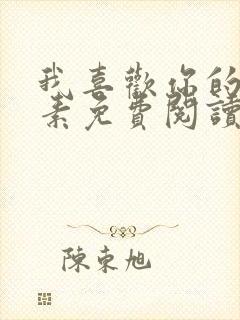 我喜歡你的
素免費閱讀
陳東旭